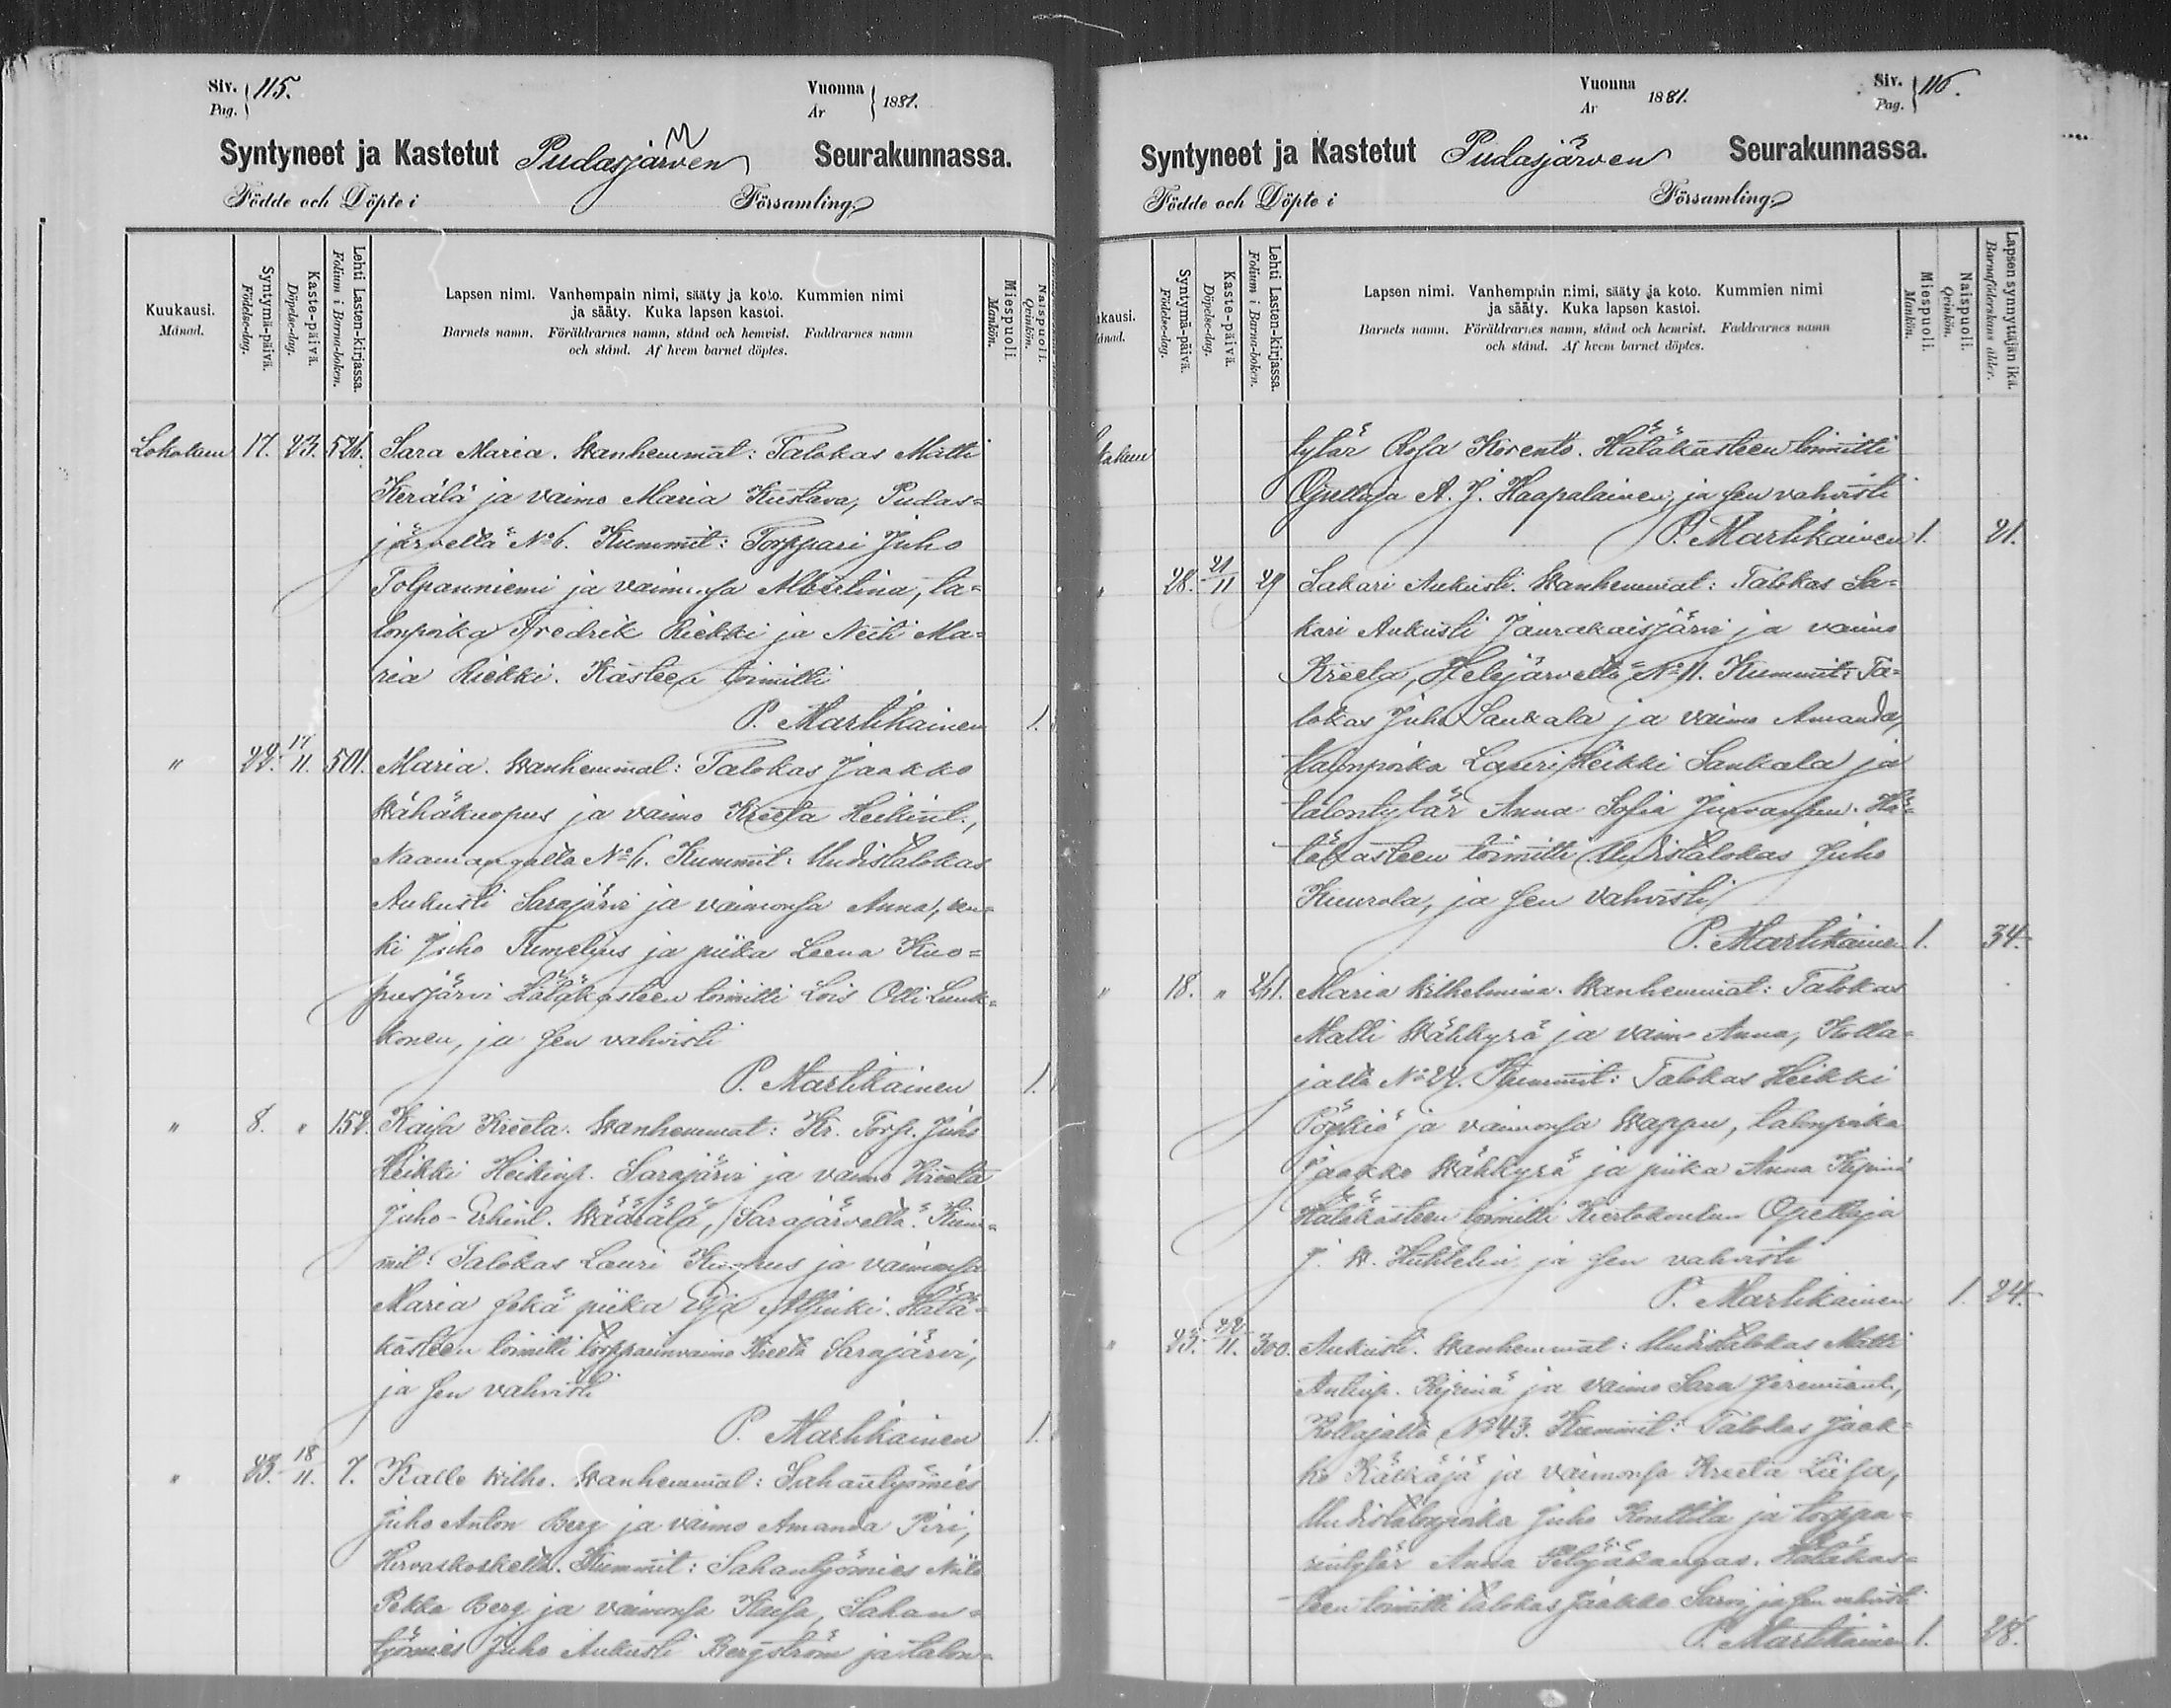 Siv. 115.
Pag.
Vuonna 1881.
Ar
Syntyneet ja Kastetut Pudasjärven Seurakunnassa.
Födde och Döpte i Församling
Kuukausi.
Månad.
Syntymä-päivä.
Födelse-dag.
Kaste-päivä.
Döpelse-dag.
Lehti Lasten-kirjassa.
Folium i Barna-boken.
Lapsen nimi. Vanhempain nimi, sääty ja koto. Kummien nimi
ja sääty. Kuka lapsen kastoi.
Barnets namn. Föräldrarnes namn, stånd och hemvist. Faddrarnes namn
och stånd. Af hvem barnet döptes.
Miespuoli.
Mankön.
Naispuoli.
Qvinkön.
Lokakuu 17. 23. 526. Sara Maria. Wanhemmat: Talokas Matti
Kerälä ja vaimo Maria Kustava, Pudas-
järveltä No 6. Kummit: Torppari Juho
Tolpanniemi ja vaimonsa Albertina, ta-
lonpoika Fredrik Riekki ja Neiti Ma-
ria Riekki. Kasteen toimitti
P. Martikainen 1.
" 22. 17/11. 501. Maria. Wanhemmat: Talokas Jaakko
Wähäkuopus ja vaimo Kreeta Heikint.,
Naamangalta No 6. Kummit: Uudistalokas
Aukusti Sarajärvi ja vaimonsa Anna, ren-
ki Juho Tumelius ja piika Leena Kuo-
pusjärvi Hätäkasteen toimitti Lois Olli Luuk-
konen, ja sen vahvisti
P. Martikainen 1.
" 8. " 152. Kaisa Kreeta. Wanhemmat: Kr. Torp. Juho
Heikki Heikinp. Sarajärvi ja vaimo Kreeta
Juho-Erkint. Wäärälä, Sarajärveltä. Kum-
mit: Talokas Lauri Kuopus ja vaimonsa
Maria sekä piika Eva Hätä-
kasteen toimitti torpparinvaimo Kreeta Sarajärvi,
ja sen vahvisti
P. Martikainen 1.
" 23. 18/11. 7. Kalle Wilho. Wanhemmat: Sahantyömies
Juho Anton Berg ja vaimo Amanda Piri,
Hirvaskoskelta. Kummit: Sahantyömies Niilo
Pekka Berg ja vaimonsa Kaisa, Sahan-
työmies Juho Aukusti Bergström ja talon-
Vuonna 1881.
Ar
Siv. 116.
Pag.
Syntyneet ja Kastetut Pudasjärven Seurakunnassa.
Födde och Döpte i Församling
ukausi.
Månad.
Syntymä-päivä.
Födelse-dag.
Kaste-päivä.
Döpelse-dag.
Lehti Lasten-kirjassa.
Folium i Barna-boken.
Lapsen nimi. Vanhempain nimi, sääty ja koto. Kummien nimi
ja sääty. Kuka lapsen kastoi.
Barnets namn. Föräldrarnes namn, stånd och hemvist. Faddrarnes namn
och stånd. Af hvem barnet döptes.
Miespuoli.
Mankön.
Naispuoli.
Qvinkön.
Lapsen synnyttäjän ikä.
Barnaföderskans ålder.
tytär Rosa Korento. Hätäkasteen toimitti
Opettaja A. J. Haapalainen, ja sen vahvisti
P. Martikainen 1. 21.
" 28. 21/11 29 Sakari Aukusti. Wanhemmat: Talokas Sa-
kari Aukusti Jaurakaisjärvi ja vaimo
Kreeta, Hetejärveltä No 11. Kummit: Ta-
lokas Juho Sankala ja vaimo Amanda,
talonpoika Lauri Heikki Sankala ja
talontytär Anna Sofia Jurvansuu. Hä-
täkasteen toimitti Uudistalokas Juho
Kuurola, ja sen vahvisti
P. Martikainen 1. 34.
" 18. " 261. Maria Wilhelmina. Wanhemmat: Talokas
Matti Wähkyrä ja vaimo Anna, Kolla-
jalta No 27. Kummit: Talokas Heikki
Pörkiö ja vaimonsa Wappu, talonpoika
Jaakko Wähkyrä ja piika Anna Kipinä
Hätäkasteen toimitti Kiertokoulun Opettaja
J. W. Huhtelin ja sen vahvisti
P. Martikainen 1. 24.
" 23. 22/11. 300. Aukusti. Wanhemmat: Uudistalokas Matti
Antinp. Kipinä ja vaimo Sara Jeremiant.,
Kollajalta No 43. Kummit: Talokas Jaak-
ko Kätkäjä ja vaimonsa Kreeta Liisa,
Uudistalonpoika Juho Konttila ja torppa-
rintytär Anna Hätäkas-
teen toimitti talokas Jaakko Sarvi, ja sen vahvisti
P. Martikainen 1. 28.